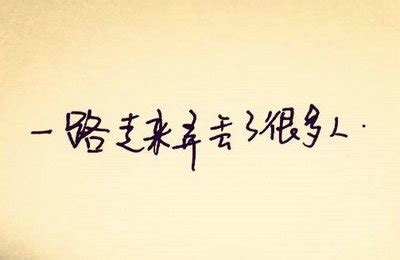 一路走来弄丢了很多人.